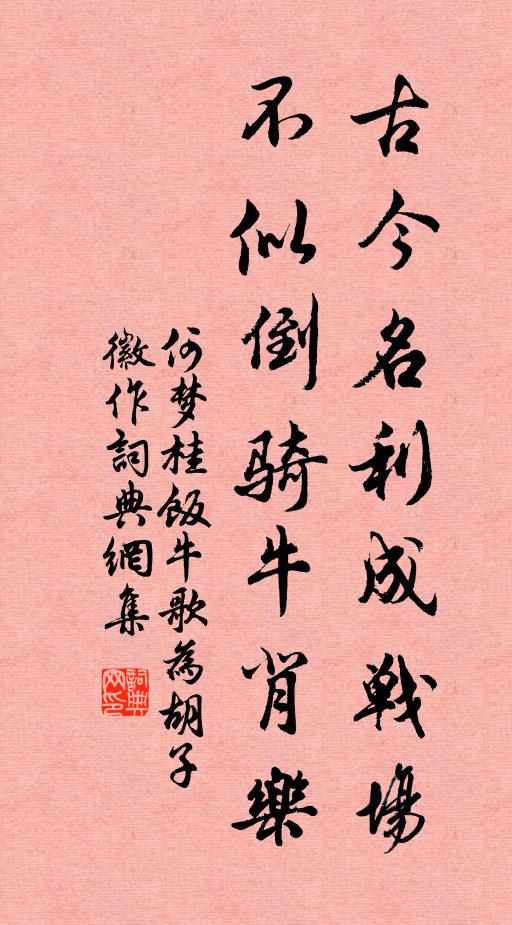 古今名利成戰場
不似倒騎牛背樂
何梦桂飯牛歌為胡子
徽作詞典網集
詞典网印